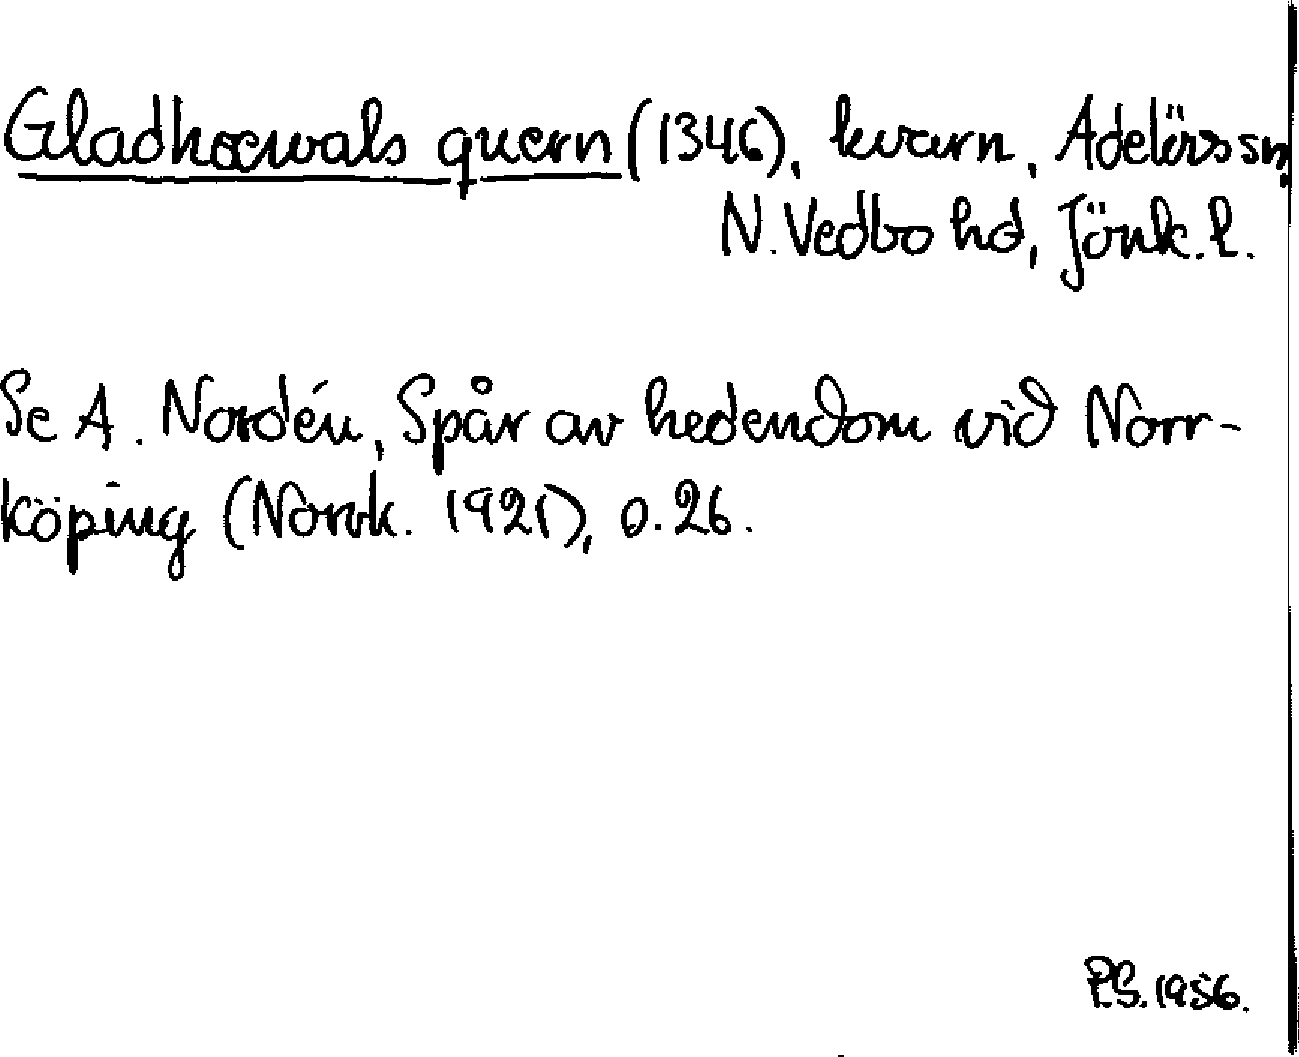 Gladhœwals quern (1346), kvarn, Adelövs sn,
N. Vedbo hd, Jönk. l.
Se A. Nordén, Spår av hedendom vid Norr-
köping (Norrk. 1921), s. 26.
P.S. 1956.